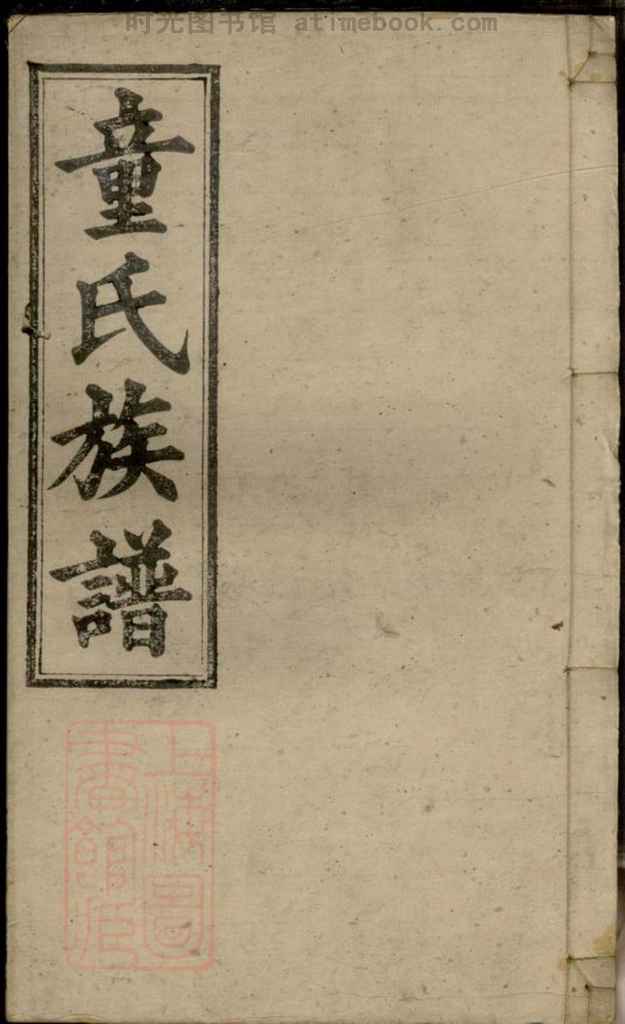 时光图书馆 atimebook.com
童氏族譜
上海圖
書館藏